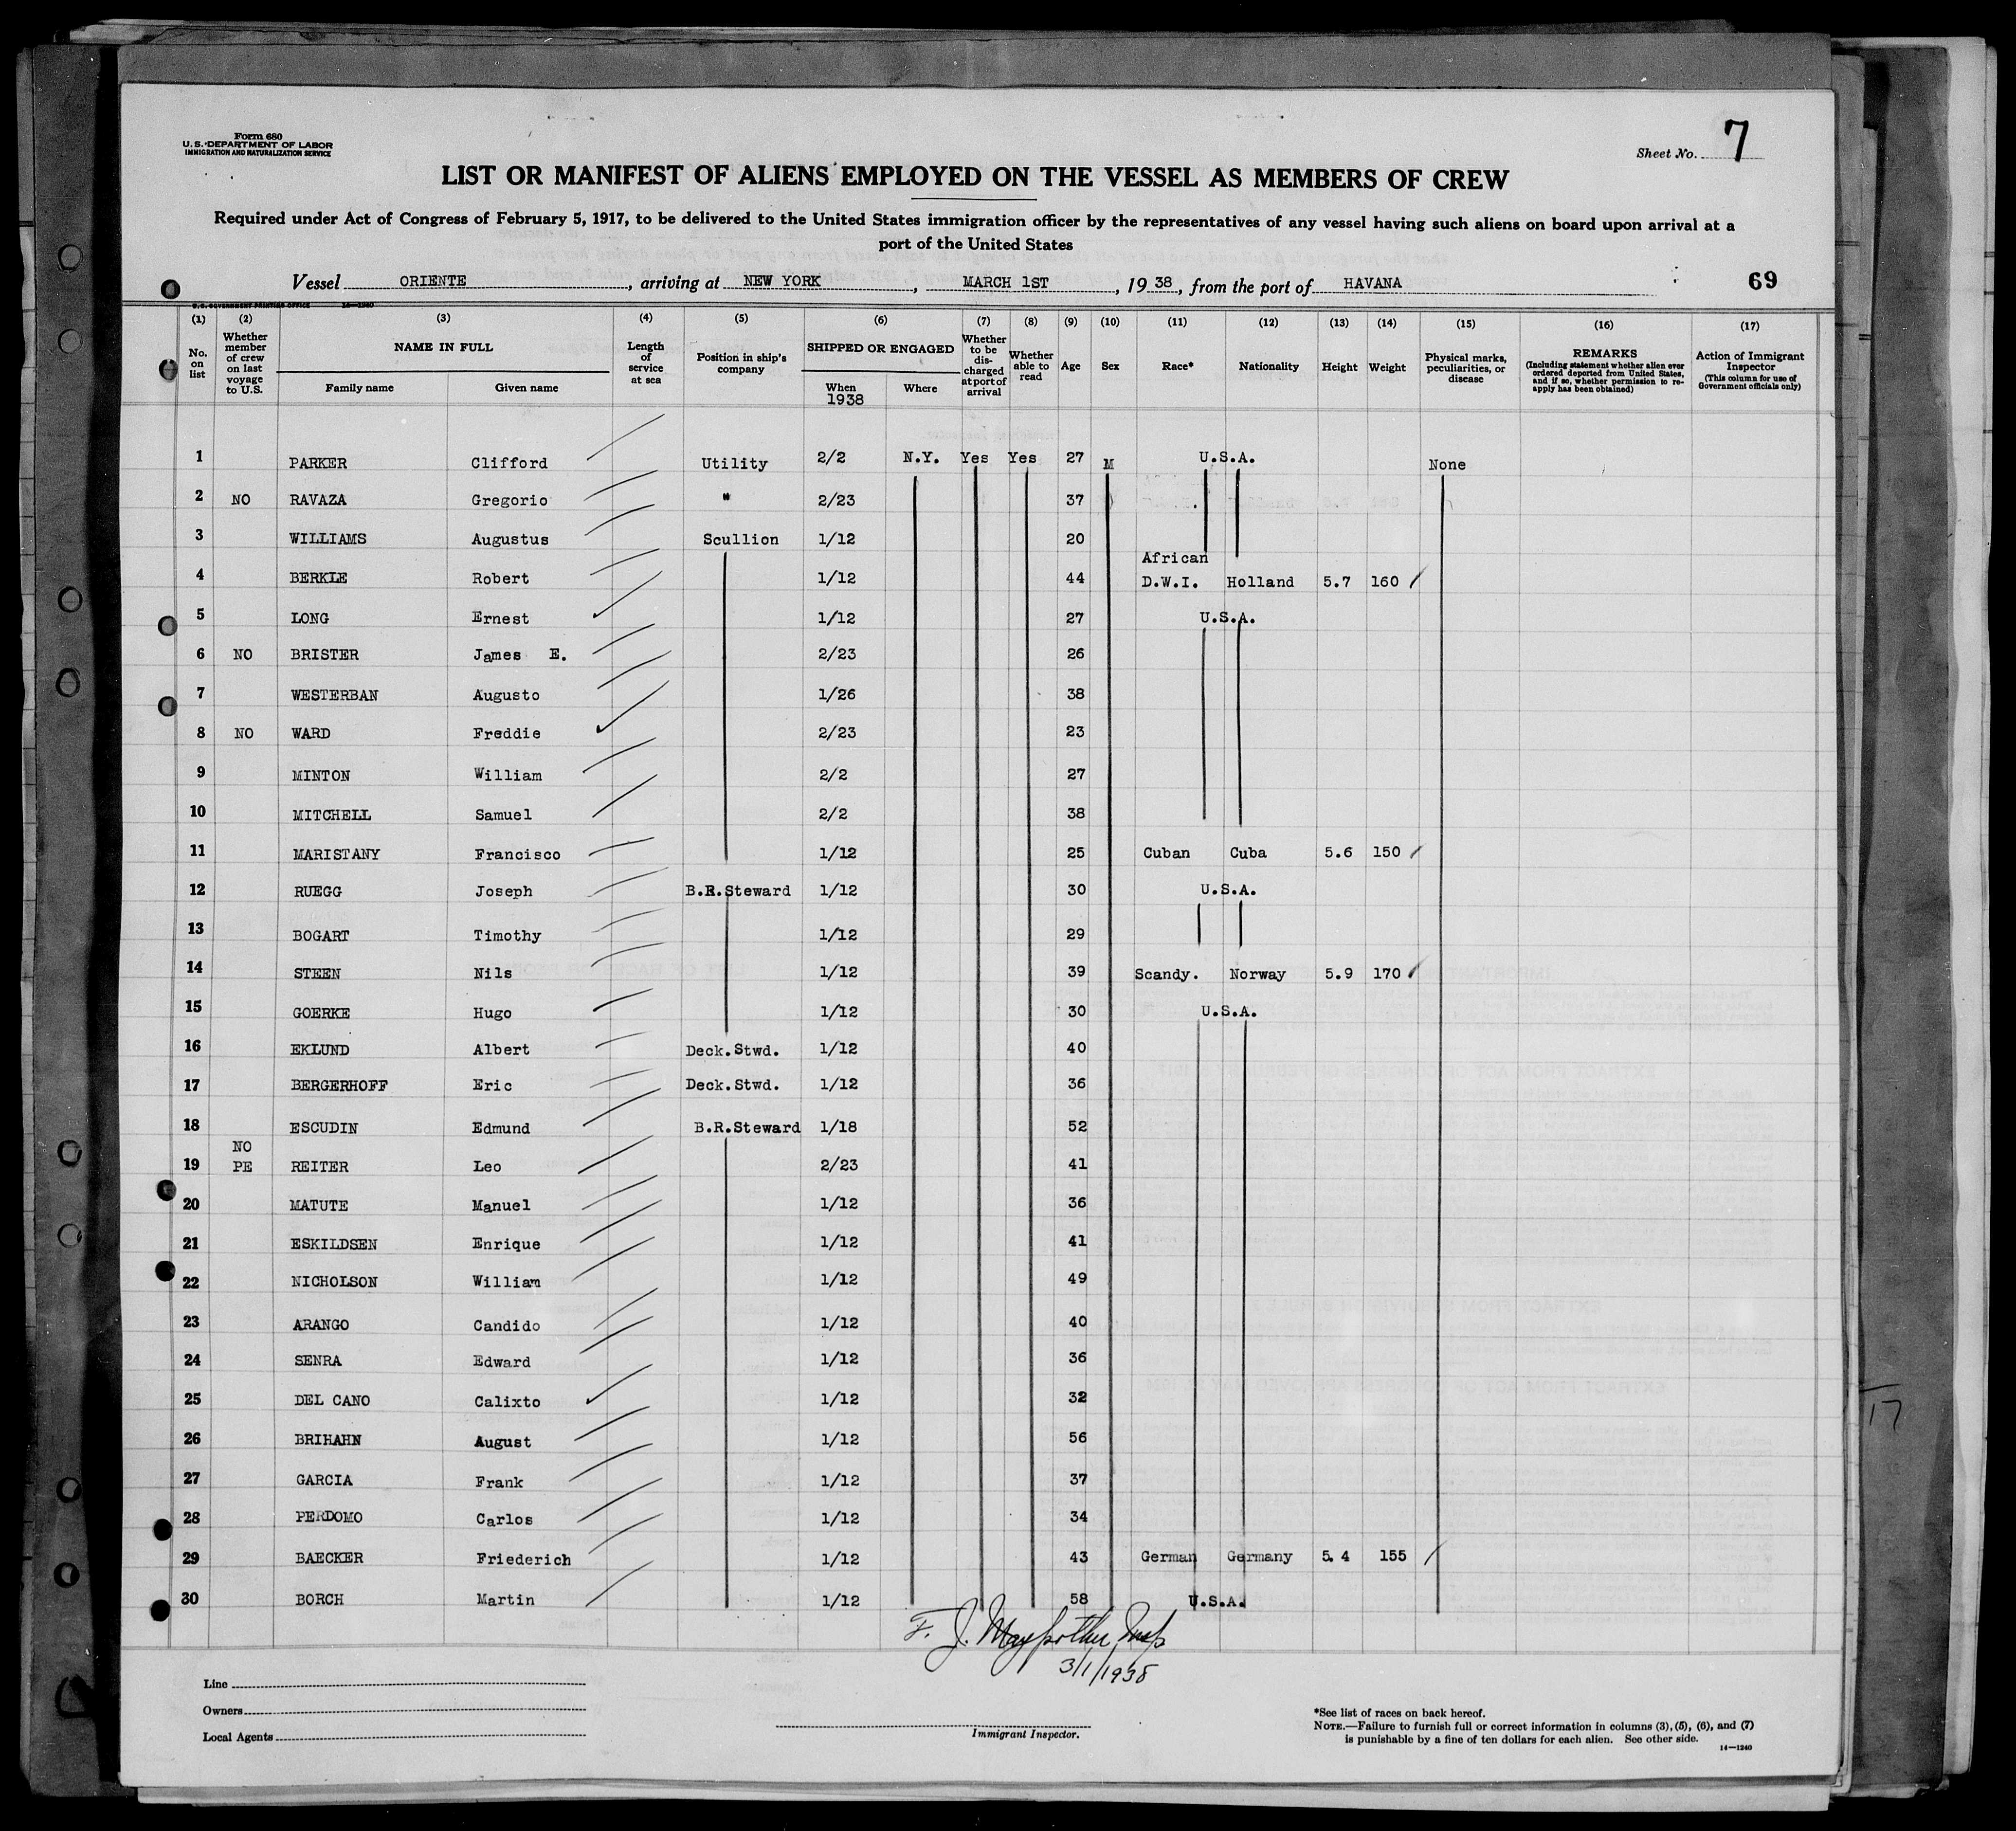 Form 680
U. S. DEPARTMENT OF LABOR
IMMIGRATION AND NATURALIZATION SERVICE
Sheet No. 7
LIST OR MANIFEST OF ALIENS EMPLOYED ON THE VESSEL AS MEMBERS OF CREW
Required under Act of Congress of February 5, 1917, to be delivered to the United States immigration officer by the representatives of any vessel having such aliens on board upon arrival at a
port of the United States
Vessel ORIENTE, arriving at NEW YORK, MARCH 1ST, 19 38, from the port of HAVANA
69
U. S. GOVERNMENT PRINTING OFFICE 14—1240
(1) (2) (3) (4) (5) (6) (7) (8) (9) (10) (11) (12) (13) (14) (15) (16) (17)
No. on list
Whether member of crew on last voyage to U.S.
NAME IN FULL
Family name Given name
Length of service at sea
Position in ship's company
SHIPPED OR ENGAGED
When 1938 Where
Whether to be discharged at port of arrival
Whether able to read
Age
Sex
Race*
Nationality
Height
Weight
Physical marks, peculiarities, or disease
REMARKS
(Including statement whether alien ever ordered deported from United States, and if so, whether permission to reapply has been obtained)
Action of Immigrant Inspector
(This column for use of Government officials only)
1 PARKER Clifford Utility 2/2 N.Y. Yes Yes 27 M U.S.A. None
2 NO RAVAZA Gregorio " 2/23 37
3 WILLIAMS Augustus Scullion 1/12 20
4 BERKLE Robert 1/12 44 African D.W.I. Holland 5.7 160
5 LONG Ernest 1/12 27 U.S.A.
6 NO BRISTER James E. 2/23 26
7 WESTERBAN Augusto 1/26 38
8 NO WARD Freddie 2/23 23
9 MINTON William 2/2 27
10 MITCHELL Samuel 2/2 38
11 MARISTANY Francisco 1/12 25 Cuban Cuba 5.6 150
12 RUEGG Joseph B.R.Steward 1/12 30 U.S.A.
13 BOGART Timothy 1/12 29
14 STEEN Nils 1/12 39 Scandy. Norway 5.9 170
15 GOERKE Hugo 1/12 30 U.S.A.
16 EKLUND Albert Deck.Stwd. 1/12 40
17 BERGERHOFF Eric Deck.Stwd. 1/12 36
18 ESCUDIN Edmund B.R.Steward 1/18 52
19 NO PE REITER Leo 2/23 41
20 MATUTE Manuel 1/12 36
21 ESKILDSEN Enrique 1/12 41
22 NICHOLSON William 1/12 49
23 ARANGO Candido 1/12 40
24 SENRA Edward 1/12 36
25 DEL CANO Calixto 1/12 32
26 BRIHAHN August 1/12 56
27 GARCIA Frank 1/12 37
28 PERDOMO Carlos 1/12 34
29 BAECKER Friederich 1/12 43 German Germany 5.4 155
30 BORCH Martin 1/12 58 U.S.A.
F. J. Insp
3/1/1938
Line
Owners
Local Agents
Immigrant Inspector.
*See list of races on back hereof.
NOTE.—Failure to furnish full or correct information in columns (3), (5), (6), and (7)
is punishable by a fine of ten dollars for each alien. See other side.
14—1240
17